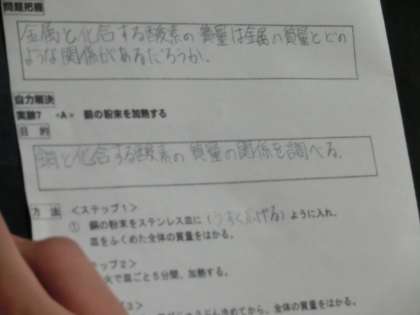 問題把握
金属と化合する酸素の質量は金属の質量とどの
ような関係があるだろうか。
自力解決
実験7 <A> 銅の粉末を加熱する
目的
銅と化合する酸素の質量の関係を調べる。
方法 <ステップ1>
① 銅の粉末をステンレス皿に(うすくひろげる)ように入れ、
皿をふくめた全体の質量をはかる。
ップ2>
火で皿ごと5分間、加熱する。
プ3>
てから、全体の質量をはかる。